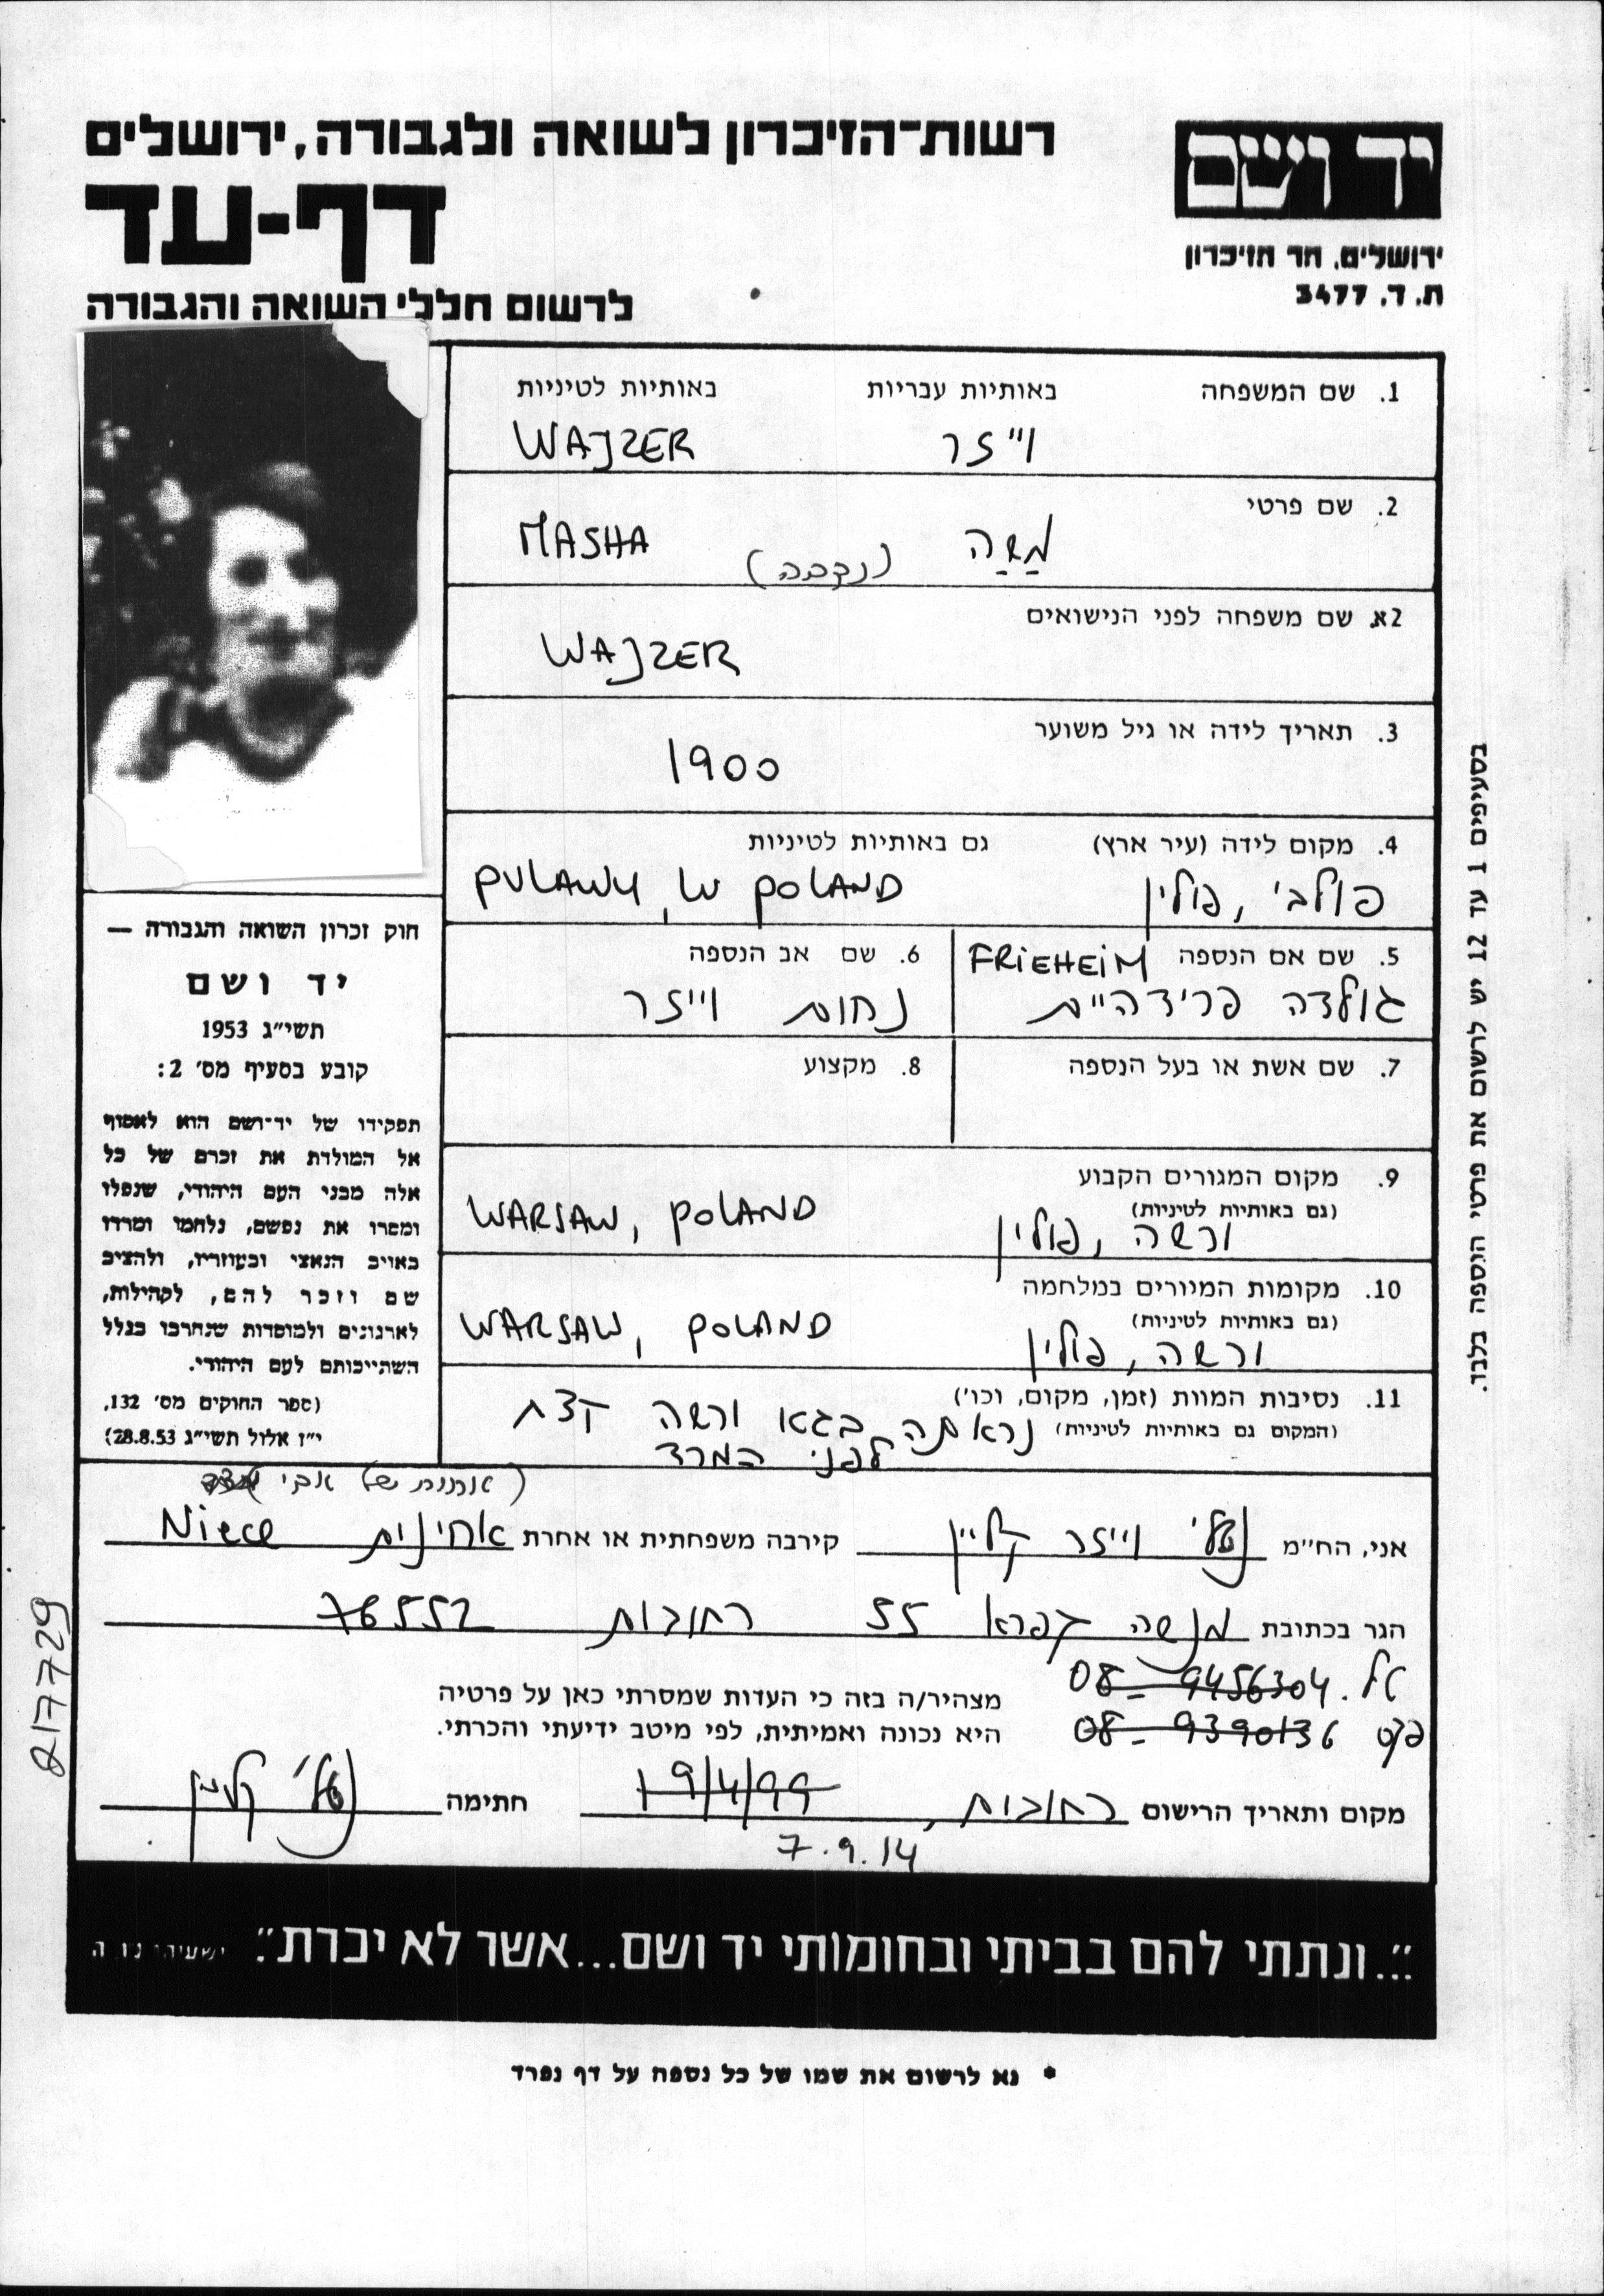 רשות־הזיכרון לשואה ולגבורה, ירושלים
יד ושם
דף-עד
ירושלים, הר הזיכרון
ת. ד. 3477
לרשום חללי השואה והגבורה
1. שם המשפחה באותיות עבריות באותיות לטיניות
וייזר WAJZER
2. שם פרטי
מַשַה (נקבה) MASHA
2א. שם משפחה לפני הנישואים
WAJZER
3. תאריך לידה או גיל משוער
1900
4. מקום לידה (עיר ארץ) גם באותיות לטיניות
פולבי, פולין PULAWY, W POLAND
5. שם אם הנספה FRIEHEIM
גולדה פרידהיים
6. שם אב הנספה
נחום וייזר
7. שם אשת או בעל הנספה
8. מקצוע
9. מקום המגורים הקבוע
(גם באותיות לטיניות)
ורשה, פולין WARSAW, POLAND
10. מקומות המגורים במלחמה
(גם באותיות לטיניות)
ורשה, פולין WARSAW, POLAND
11. נסיבות המוות (זמן, מקום, וכו')
(המקום גם באותיות לטיניות) נראתה בגטו ורשה קצת
לפני המרד
חוק זכרון השואה והגבורה —
יד ושם
תשי״ג 1953
קובע בסעיף מס׳ 2:
תפקידו של יד־ושם הוא לאסוף
אל המולדת את זכרם של כל
אלה מבני העם היהודי, שנפלו
ומסרו את נפשם, נלחמו ומרדו
באויב הנאצי ובעוזריו, ולהציב
שם וזכר להם, לקהילות,
לארגונים ולמוסדות שנחרבו בגלל
השתייכותם לעם היהודי.
(ספר החוקים מס׳ 132,
י״ז אלול תשי״ג 28.8.53)
בסעיפים 1 עד 12 יש לרשום את פרטי הנספה בלבד.
(אחות של אבי
אני, הח״מ נטלי וייזר קליין קירבה משפחתית או אחרת אחינית Niece
הגר בכתובת מנשה קפרא 55 רחובות 76552
טל. 08-9456304
פקס 08-9390136
מצהיר/ה בזה כי העדות שמסרתי כאן על פרטיה
היא נכונה ואמיתית, לפי מיטב ידיעתי והכרתי.
מקום ותאריך הרישום רחובות, 19/4/99 חתימה נטלי קליין
7.9.14
817729
"...ונתתי להם בביתי ובחומותי יד ושם...אשר לא יכרת". ישעיהו נו ה
* נא לרשום את שמו של כל נספה על דף נפרד